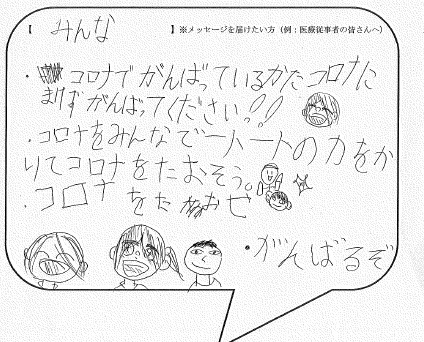 【 みんな 】※メッセージを届けたい方（例：医療従事者の皆さんへ）
・コロナでがんばっているかたコロナに
まけずがんばってください!!
・コロナをみんなで一ハートの力をか
りてコロナをたおそう。
・コロナをたおせ
・がんばるぞ